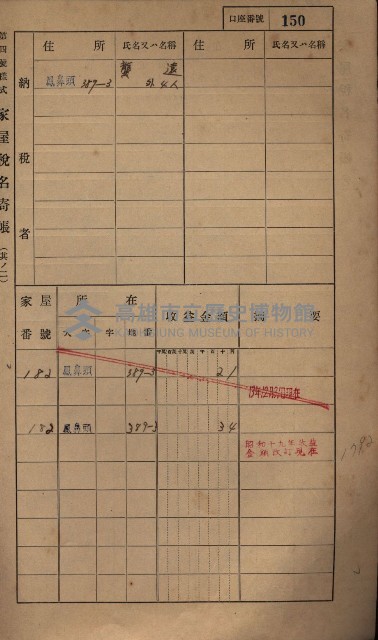 口座番號 150
第四號樣式 家屋稅名寄帳(其ノ二)
納稅者
住所 氏名又ハ名稱 住所 氏名又ハ名稱
鳳鼻頭 387-3 龔 遠
外4人
家屋番號 所在 收益金額 摘要
大字 字 地番
182 鳳鼻頭 387-3 21
182 鳳鼻頭 387-3 34
昭和十九年收益
金額改訂現在
高雄市立歷史博物館
KAOHSIUNG MUSEUM OF HISTORY